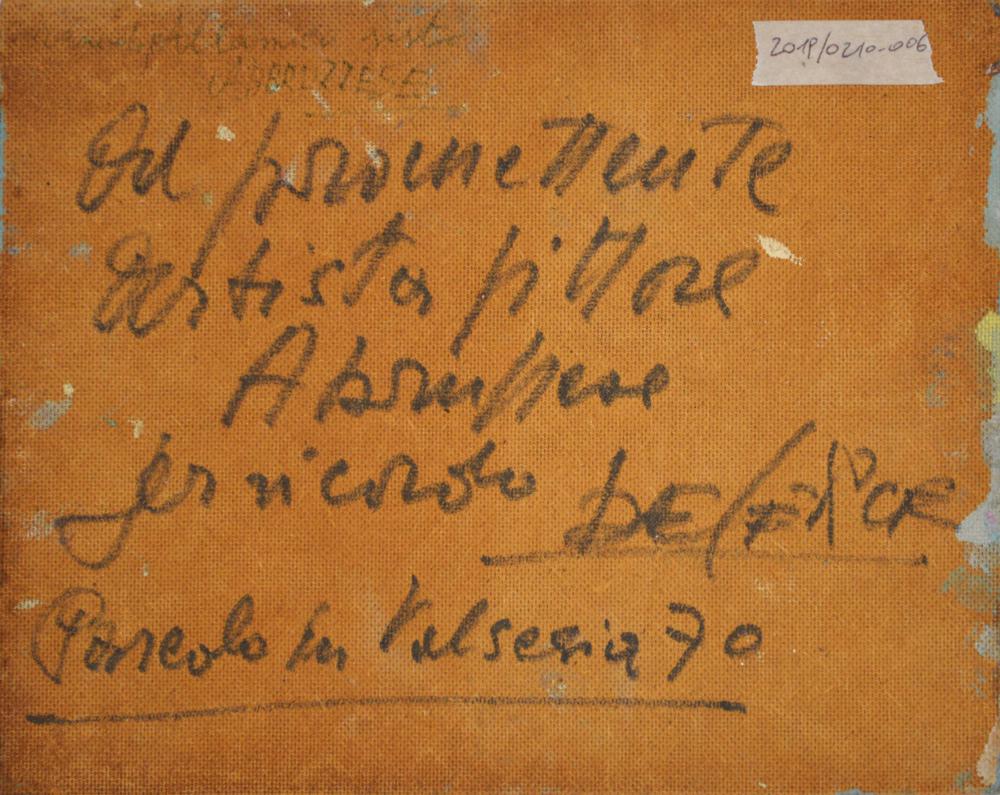 2019/0210-006
ABRUZZESE
Al promettente
Artista pittore
Abruzzese
per ricordo DE FELICE
Pascolo in Valsesia 70